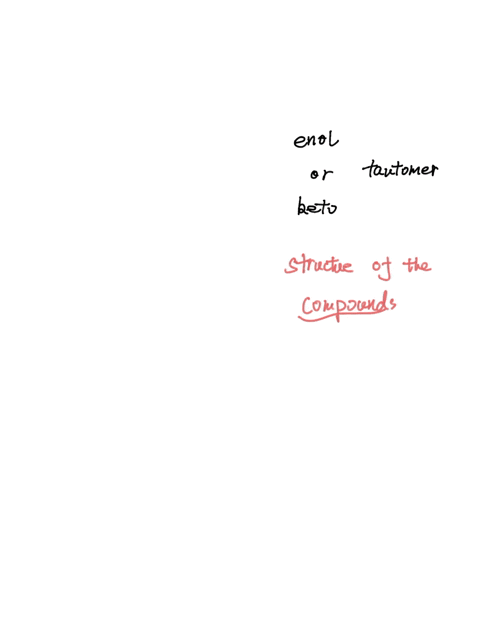 enol
or tautomer
keto
structue of the
compounds